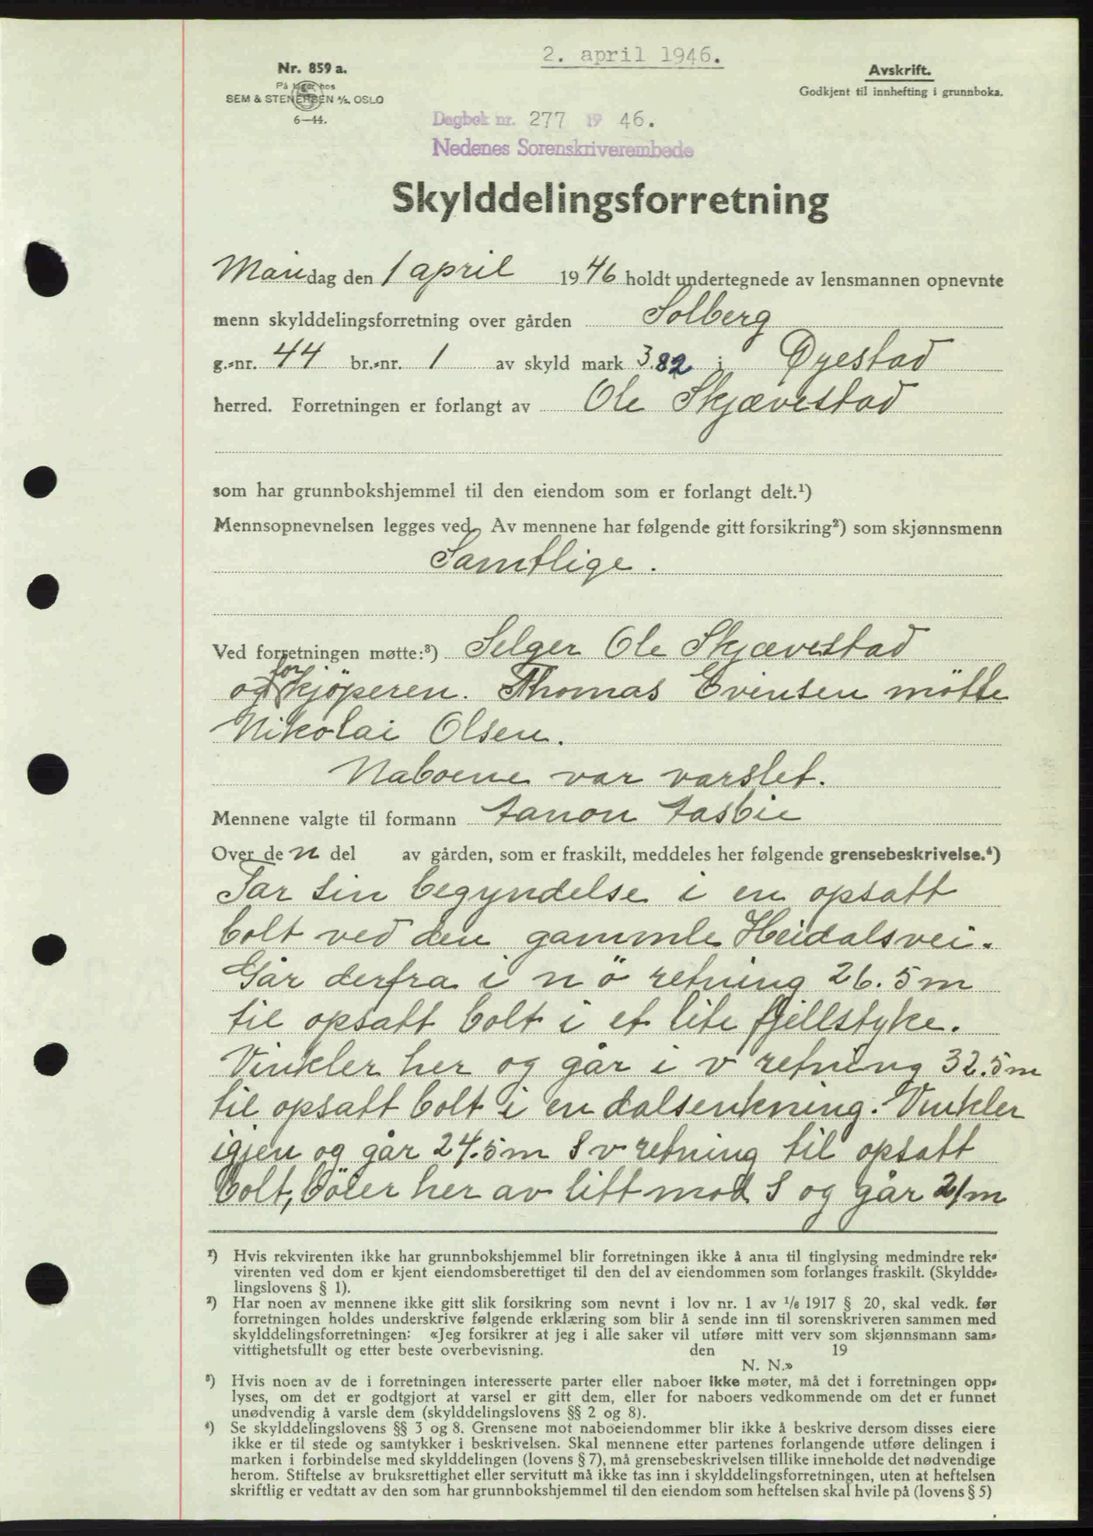 2. april 1946.
Nr. 859 a.
På lager hos
SEM & STENERSEN A/S, OSLO
6—44.
Avskrift.
Godkjent til innhefting i grunnboka.
Dagbok nr. 277 19 46.
Nedenes Sorenskriverembede
Skylddelingsforretning
Mandag den 1 april 1946 holdt undertegnede av lensmannen opnevnte
menn skylddelingsforretning over gården Solberg
g.-nr. 44 br.-nr. 1 av skyld mark 3.82 i Øyestad
herred. Forretningen er forlangt av Ole Skjævestad
som har grunnbokshjemmel til den eiendom som er forlangt delt.¹)
Mennsopnevnelsen legges ved. Av mennene har følgende gitt forsikring²) som skjønnsmenn
Samtlige.
Ved forretningen møtte:³) Selger Ole Skjævestad
og for kjöperen. Thomas Evensen mötte
Nikolai Olsen.
Naboene var varslet.
Mennene valgte til formann
Over den del av gården, som er fraskilt, meddeles her følgende grensebeskrivelse.⁴)
Tar sin begyndelse i en opsatt
bolt ved den gammle Heidalsvei.
Går derfra i n ö retning 26.5 m
til opsatt bolt i et lite fjellstyke.
Vinkler her og går i v retning 32.5 m
til opsatt bolt i en dalsenkning. Vinkler
igjen og går 24.5 m S v retning til opsatt
bolt, böier her av litt mod S og går 21 m
¹) Hvis rekvirenten ikke har grunnbokshjemmel blir forretningen ikke å anta til tinglysing medmindre rek-
virenten ved dom er kjent eiendomsberettiget til den del av eiendommen som forlanges fraskilt. (Skyldde-
lingslovens § 1).
²) Har noen av mennene ikke gitt slik forsikring som nevnt i lov nr. 1 av 1/6 1917 § 20, skal vedk. før
forretningen holdes underskrive følgende erklæring som blir å sende inn til sorenskriveren sammen med
skylddelingsforretningen: «Jeg forsikrer at jeg i alle saker vil utføre mitt verv som skjønnsmann sam-
vittighetsfullt og etter beste overbevisning. den 19
N. N.»
³) Hvis noen av de i forretningen interesserte parter eller naboer ikke møter, må det i forretningen opp-
lyses, om det er godtgjort at varsel er gitt dem, eller for naboers vedkommende om det er funnet
unødvendig å varsle dem (skylddelingslovens §§ 2 og 8).
⁴) Se skylddelingslovens §§ 3 og 8. Grensene mot naboeiendommer blir ikke å beskrive dersom disses eiere
ikke er til stede og samtykker i beskrivelsen. Skal mennene etter partenes forlangende utføre delingen i
marken i forbindelse med skylddelingen (lovens § 7), må grensebeskrivelsen tillike inneholde det nødvendige
herom. Stiftelse av bruksrettighet eller servitutt må ikke tas inn i skylddelingsforretningen, uten at heftelsen
skriftlig er vedtatt av den som har grunnbokshjemmel til den eiendom som heftelsen skal hvile på (lovens § 5)